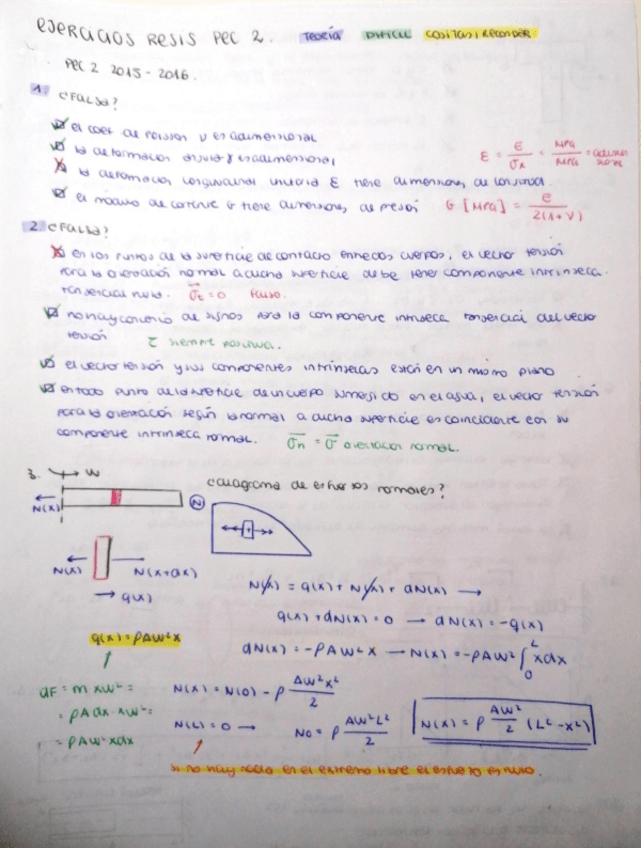 EJERCICIOS RESIS PEC 2. TEORÍA DIFICIL COSITAS A RECORDAR
PEC 2 2015-2016.
1. ¿FALSA?
el coef de Poisson ν es adimensional
la deformación angular γ es adimensional
la deformación longitudinal unitaria ε tiene dimensiones de longitud.
ε = = MPa/MPa =
el módulo de cortante G tiene dimensiones de presión G [MPa] = E/2(1+ν)
2. ¿FALSA?
en los puntos de la superficie de contacto entre dos cuerpos, el vector tensión
para la orientación normal a dicha superficie debe tener componente intrínseca
tangencial nula. = 0 Falso.
no hay convenio de signos para la componente intrínseca tangencial del vector
tensión τ siempre positiva.
el vector tensión y sus componentes intrínsecas están en un mismo plano
en todo punto de la superficie de un cuerpo sumergido en el agua, el vector tensión
para la orientación según la normal a dicha superficie es coincidente con su
componente intrínseca normal. σn = σ orientación normal.
3. W
¿diagrama de esfuerzos normales?
N(x) N
N(x) N(x+dx)
q(x)
N(x) = q(x) + N(x) + dN(x) →
q(x) + dN(x) = 0 → dN(x) = -q(x)
q(x) = ρAW²x
dN(x) = -ρAW²x → N(x) = -ρAW² ∫₀ᴸ xdx
dF = m xW² =
= ρAdx·xW² =
= ρAW²xdx
N(x) = N(0) - ρ AW²x²/2
N(L) = 0 → N0 = ρ AW²L²/2
N(x) = ρ AW²/2 (L²-x²)
si no hay nada en el extremo libre el esfuerzo es nulo.